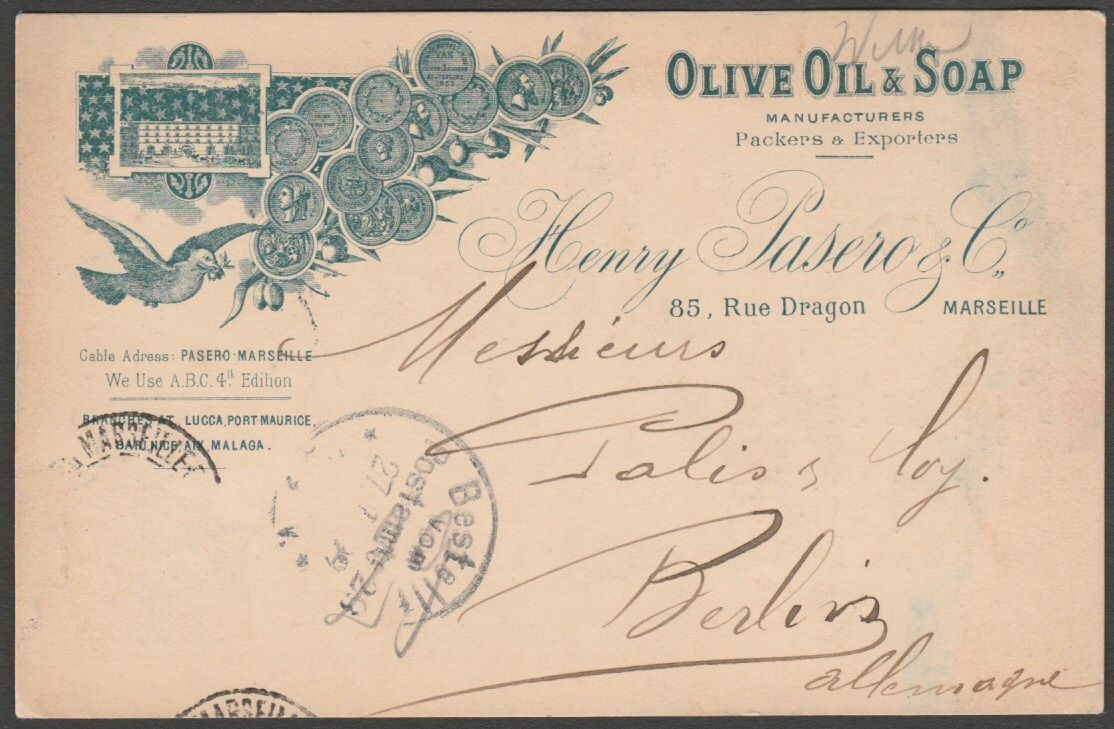 OLIVE OIL & SOAP
MANUFACTURERS
Packers & Exporters
Henry Pasero & Co
85, Rue Dragon MARSEILLE
Cable Adress: PASERO-MARSEILLE
We Use A.B.C. 4th Edition
BRANCHES AT LUCCA, PORT-MAURICE,
BARI, NICE, AIX, MALAGA.
Messieurs
Palis & Coy.
Berlin
allemagne
MARSEILLE
Bestellt
vom
Postamte
27
MARSEILL